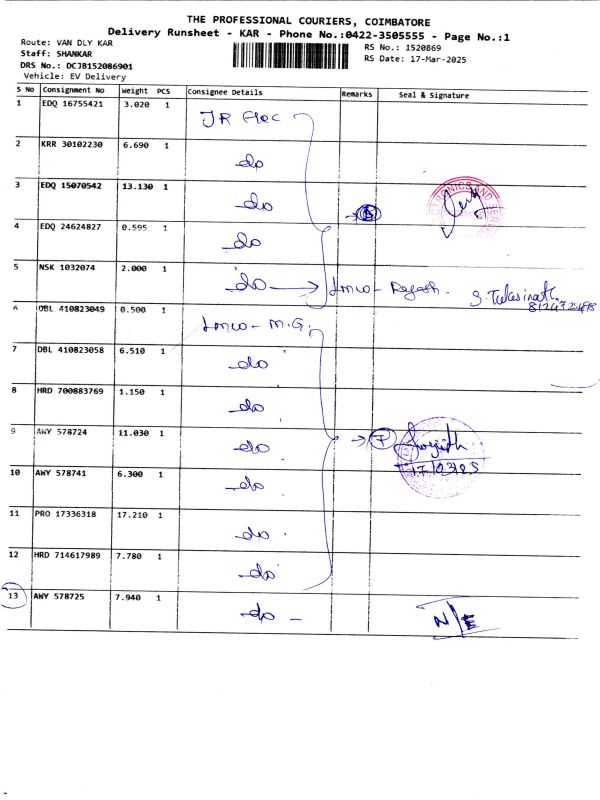 THE PROFESSIONAL COURIERS, COIMBATORE
Delivery Runsheet - KAR - Phone No.:0422-3505555 - Page No.:1
Route: VAN DLY KAR
Staff: SHANKAR
DRS No.: DCJB152086901
Vehicle: EV Delivery
RS No.: 1520869
RS Date: 17-Mar-2025
S No Consignment No Weight PCS Consignee Details Remarks Seal & Signature
1 EDQ 16755421 3.020 1 JR Elec
2 KRR 30102230 6.690 1 do
3 EDQ 15070542 13.130 1 do
4 EDQ 24624827 0.595 1 do
5 NSK 1032074 2.000 1 do Lmco - Rajesh.
6 OBL 410823049 0.500 1 Lmco - M.G.
7 DBL 410823058 6.510 1 do
8 HRD 700883769 1.150 1 do
9 AWY 578724 11.030 1 do 7
10 AWY 578741 6.300 1 do
11 PRO 17336318 17.210 1 do
12 HRD 714617989 7.780 1 do
13 AWY 578725 7.940 1 do - N/E